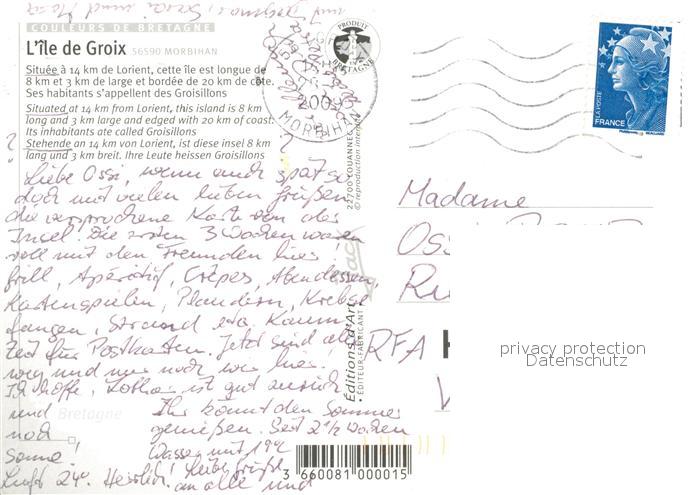 COULEURS DE BRETAGNE
L'île de Groix 56590 MORBIHAN
Située à 14 km de Lorient, cette île est longue de
8 km et 3 km de large et bordée de 20 km de côte.
Ses habitants s'appellent des Groisillons
Situated at 14 km from Lorient, this island is 8 km
long and 3 km large and edged with 20 km of coast.
Its inhabitants ate called Groisillons
Stehende an 14 km von Lorient, ist diese insel 8 km
lang und 3 km breit. Ihre Leute heissen Groisillons
PRODUIT
BRETAGNE
2009
MORBIHAN
LA POSTE
FRANCE
22700 LOUANNEC
© reproduction interdite
Editions d'Art
• EDITEUR-FABRICANT •
Liebe Ossi, wenn auch spät so
doch mit vielen lieben Grüßen
die versprochene Karte von der
Insel. Die ersten 3 Wochen waren
voll mit den Freunden hier:
Grill, Apéritif, Crêpes, Abendessen,
Kartenspielen, Plaudern, Krebse
fangen, Strand etc. Kaum
Zeit für Postkarten. Jetzt sind alle
weg und nur noch wir hier.
Ich hoffe, Lothar ist gut zurück
und Ihr könnt den Sommer
noch genießen. Seit 2 1/2 Wochen
Sonne! Wasser mit 19°
Luft 24° Herzlich! Liebe Grüße
an alle und
Bretagne
Madame
RFA
3 660081 000015
privacy protection
Datenschutz